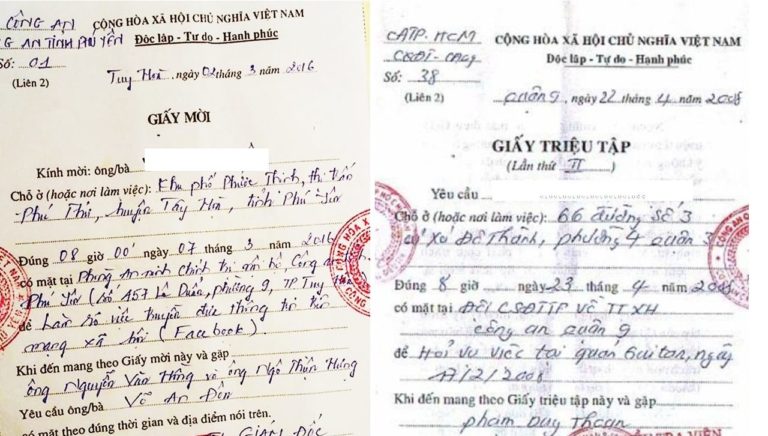 CÔNG AN
CỘNG HÒA XÃ HỘI CHỦ NGHĨA VIỆT NAM
G AN TỈNH PHÚ YÊN
Độc lập - Tự do - Hạnh phúc
Số: 01
(Liên 2)
Tuy Hoà, ngày 02 tháng 3 năm 2016
GIẤY MỜI
Kính mời: ông/bà
Chỗ ở (hoặc nơi làm việc): Khu phố Phước Thịnh, thị trấn
Phú Thứ, huyện Tây Hoà, tỉnh Phú Yên
Đúng 08 giờ 00' ngày 07 tháng 3 năm 2016
có mặt tại Phòng An ninh chính trị nội bộ, Công an
Phú Yên (số A57 Lê Duẩn, phường 9, TP Tuy
để Làm rõ việc truyền đưa thông tin trên
mạng xã hội (Facebook).
Khi đến mang theo Giấy mời này và gặp
ông Nguyễn Văn Hồng và ông Ngô Thiện Hưng
Yêu cầu ông/bà Võ An Đôn
có mặt theo đúng thời gian và địa điểm nói trên.
GIÁM ĐỐC
CATP. HCM
CỘNG HÒA XÃ HỘI CHỦ NGHĨA VIỆT NAM
Độc lập - Tự do - Hạnh phúc
Số: 38
(Liên 2)
quận 9, ngày 22 tháng 4 năm 2008
GIẤY TRIỆU TẬP
(Lần thứ II)
Yêu cầu
Chỗ ở (hoặc nơi làm việc): 66 đường Số 3
cư Xá Đô Thành, phường 4 quận 3
Đúng 8 giờ ngày 23 tháng 4 năm 2008
có mặt tại Đội CSĐTTP về TTXH
công an quận 9
để Hỏi vụ việc tại quán Guitar, ngày
17/2/2008
Khi đến mang theo Giấy triệu tập này và gặp
phạm Duy Thoan